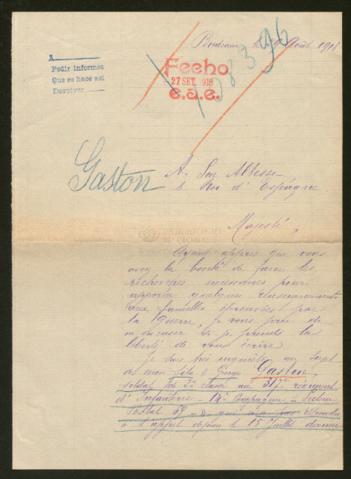 A
Pedir informes
Que se hace así
Devolver
Bordeaux, le Août 1918
Fecho
27 SET. 1918
e.a.e.
Gaston
A Son Altesse
le Roi d'Espagne
Majesté,
Ayant appris que vous
avez la bonté de faire les
recherches nécessaires pour
apporter quelques renseignements
aux familles éprouvées par
la guerre, je vous prie de
m'excuser si je prends la
liberté de vous écrire.
Je suis très inquiète au sujet
de mon fils Gaston,
soldat de 2e classe au régiment
d'Infanterie - Compagnie - Secteur
Postal
à l'appel depuis le 15 Juillet dernier